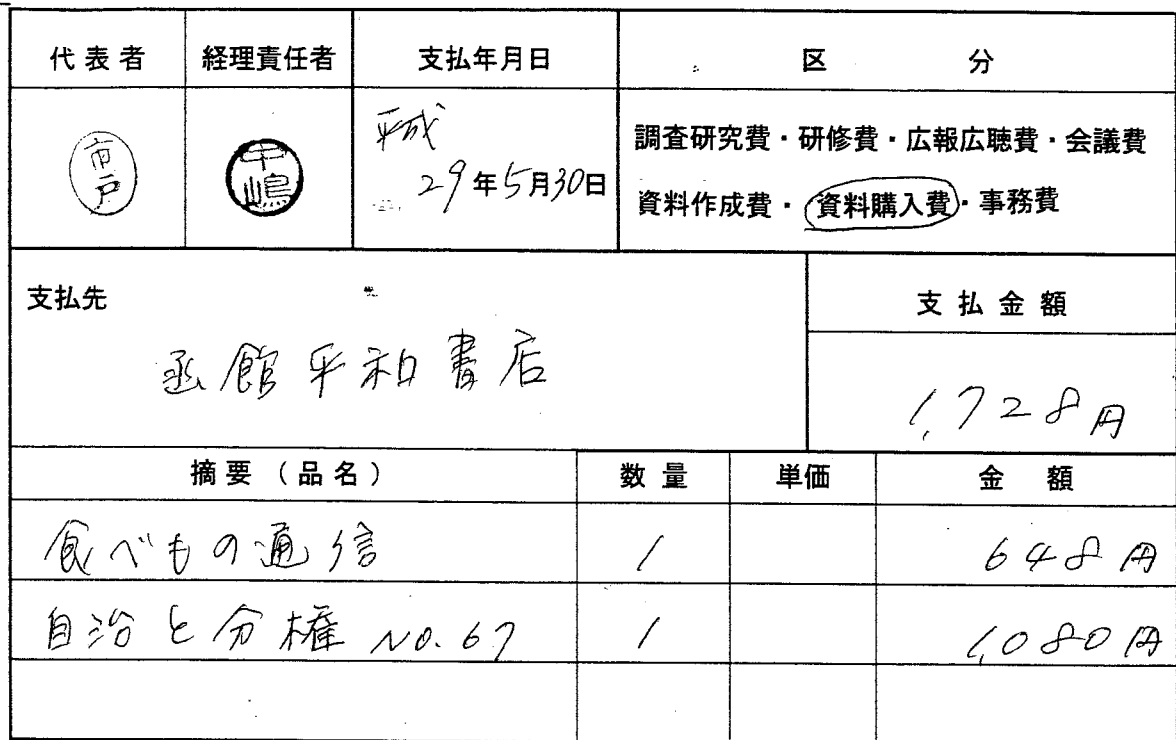 代表者 経理責任者 支払年月日 区分
市戸 中嶋 平成 29年5月30日
調査研究費・研修費・広報広聴費・会議費
資料作成費・資料購入費・事務費
支払先 支払金額
函館平和書店
1,728円
摘要（品名） 数量 単価 金額
食べもの通信 1 648円
自治と分権 NO.67 1 1,080円